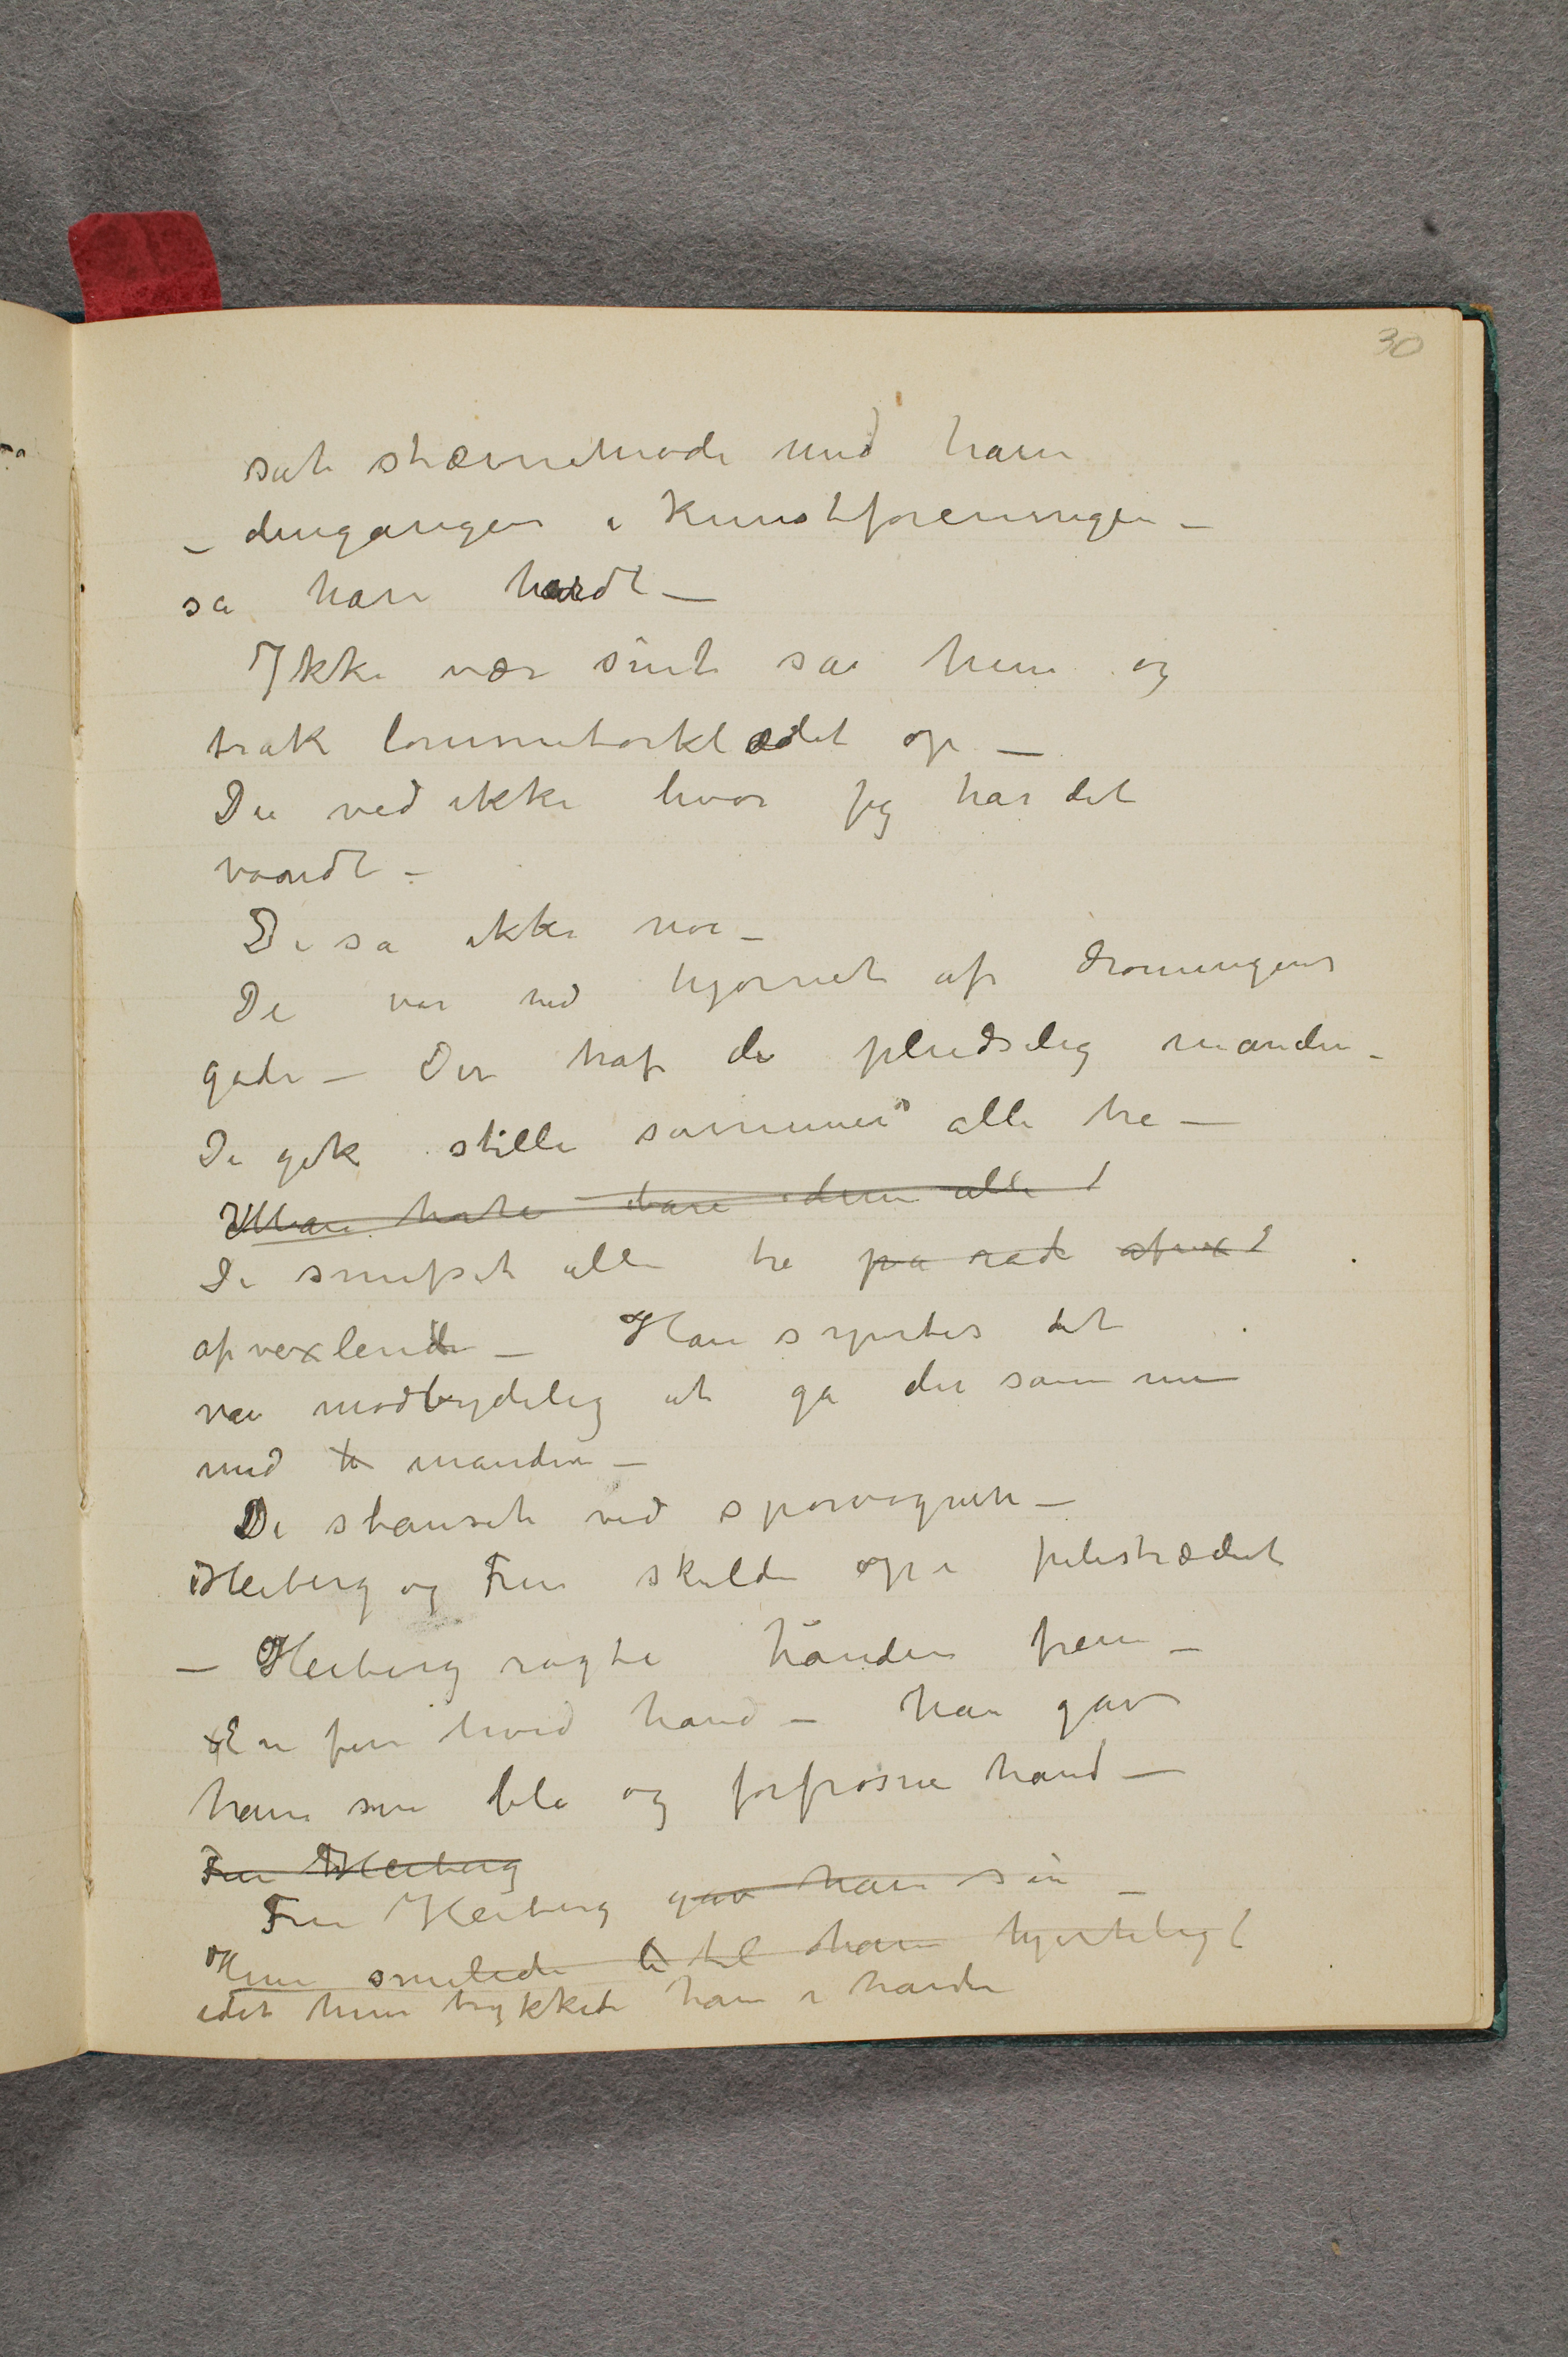 30
satt stævnemøde med ham
– dengangen i Kunstforeningen –
sa han hardt –
Ikke vær sint sa hun og
trak lommetørklædet op –
Du ved ikke hvor jeg har det
vondt –
De sa ikke noe –
De var ved hjørnet af Dronningens
gade – Der traf de pludselig manden –
De gik stille sammen alle tre –
bare dem alle
De snufset alle tre på rad afvex
afvexlende – Han syntes det
var modbydelig at gå der sammen
med manden –
De stanset ved sporvognen –
Heiberg og Fru skulde op i pilestrædet
– Heiberg ragte hånden frem –
En fin hvid hånd – han gav
ham sin blå og forfrosne hånd –
Fru Heiberg
Fru Heiberg gav ham sin –
Hun smilede til ham hjerteligt
idet hun trykkede ham i hånden